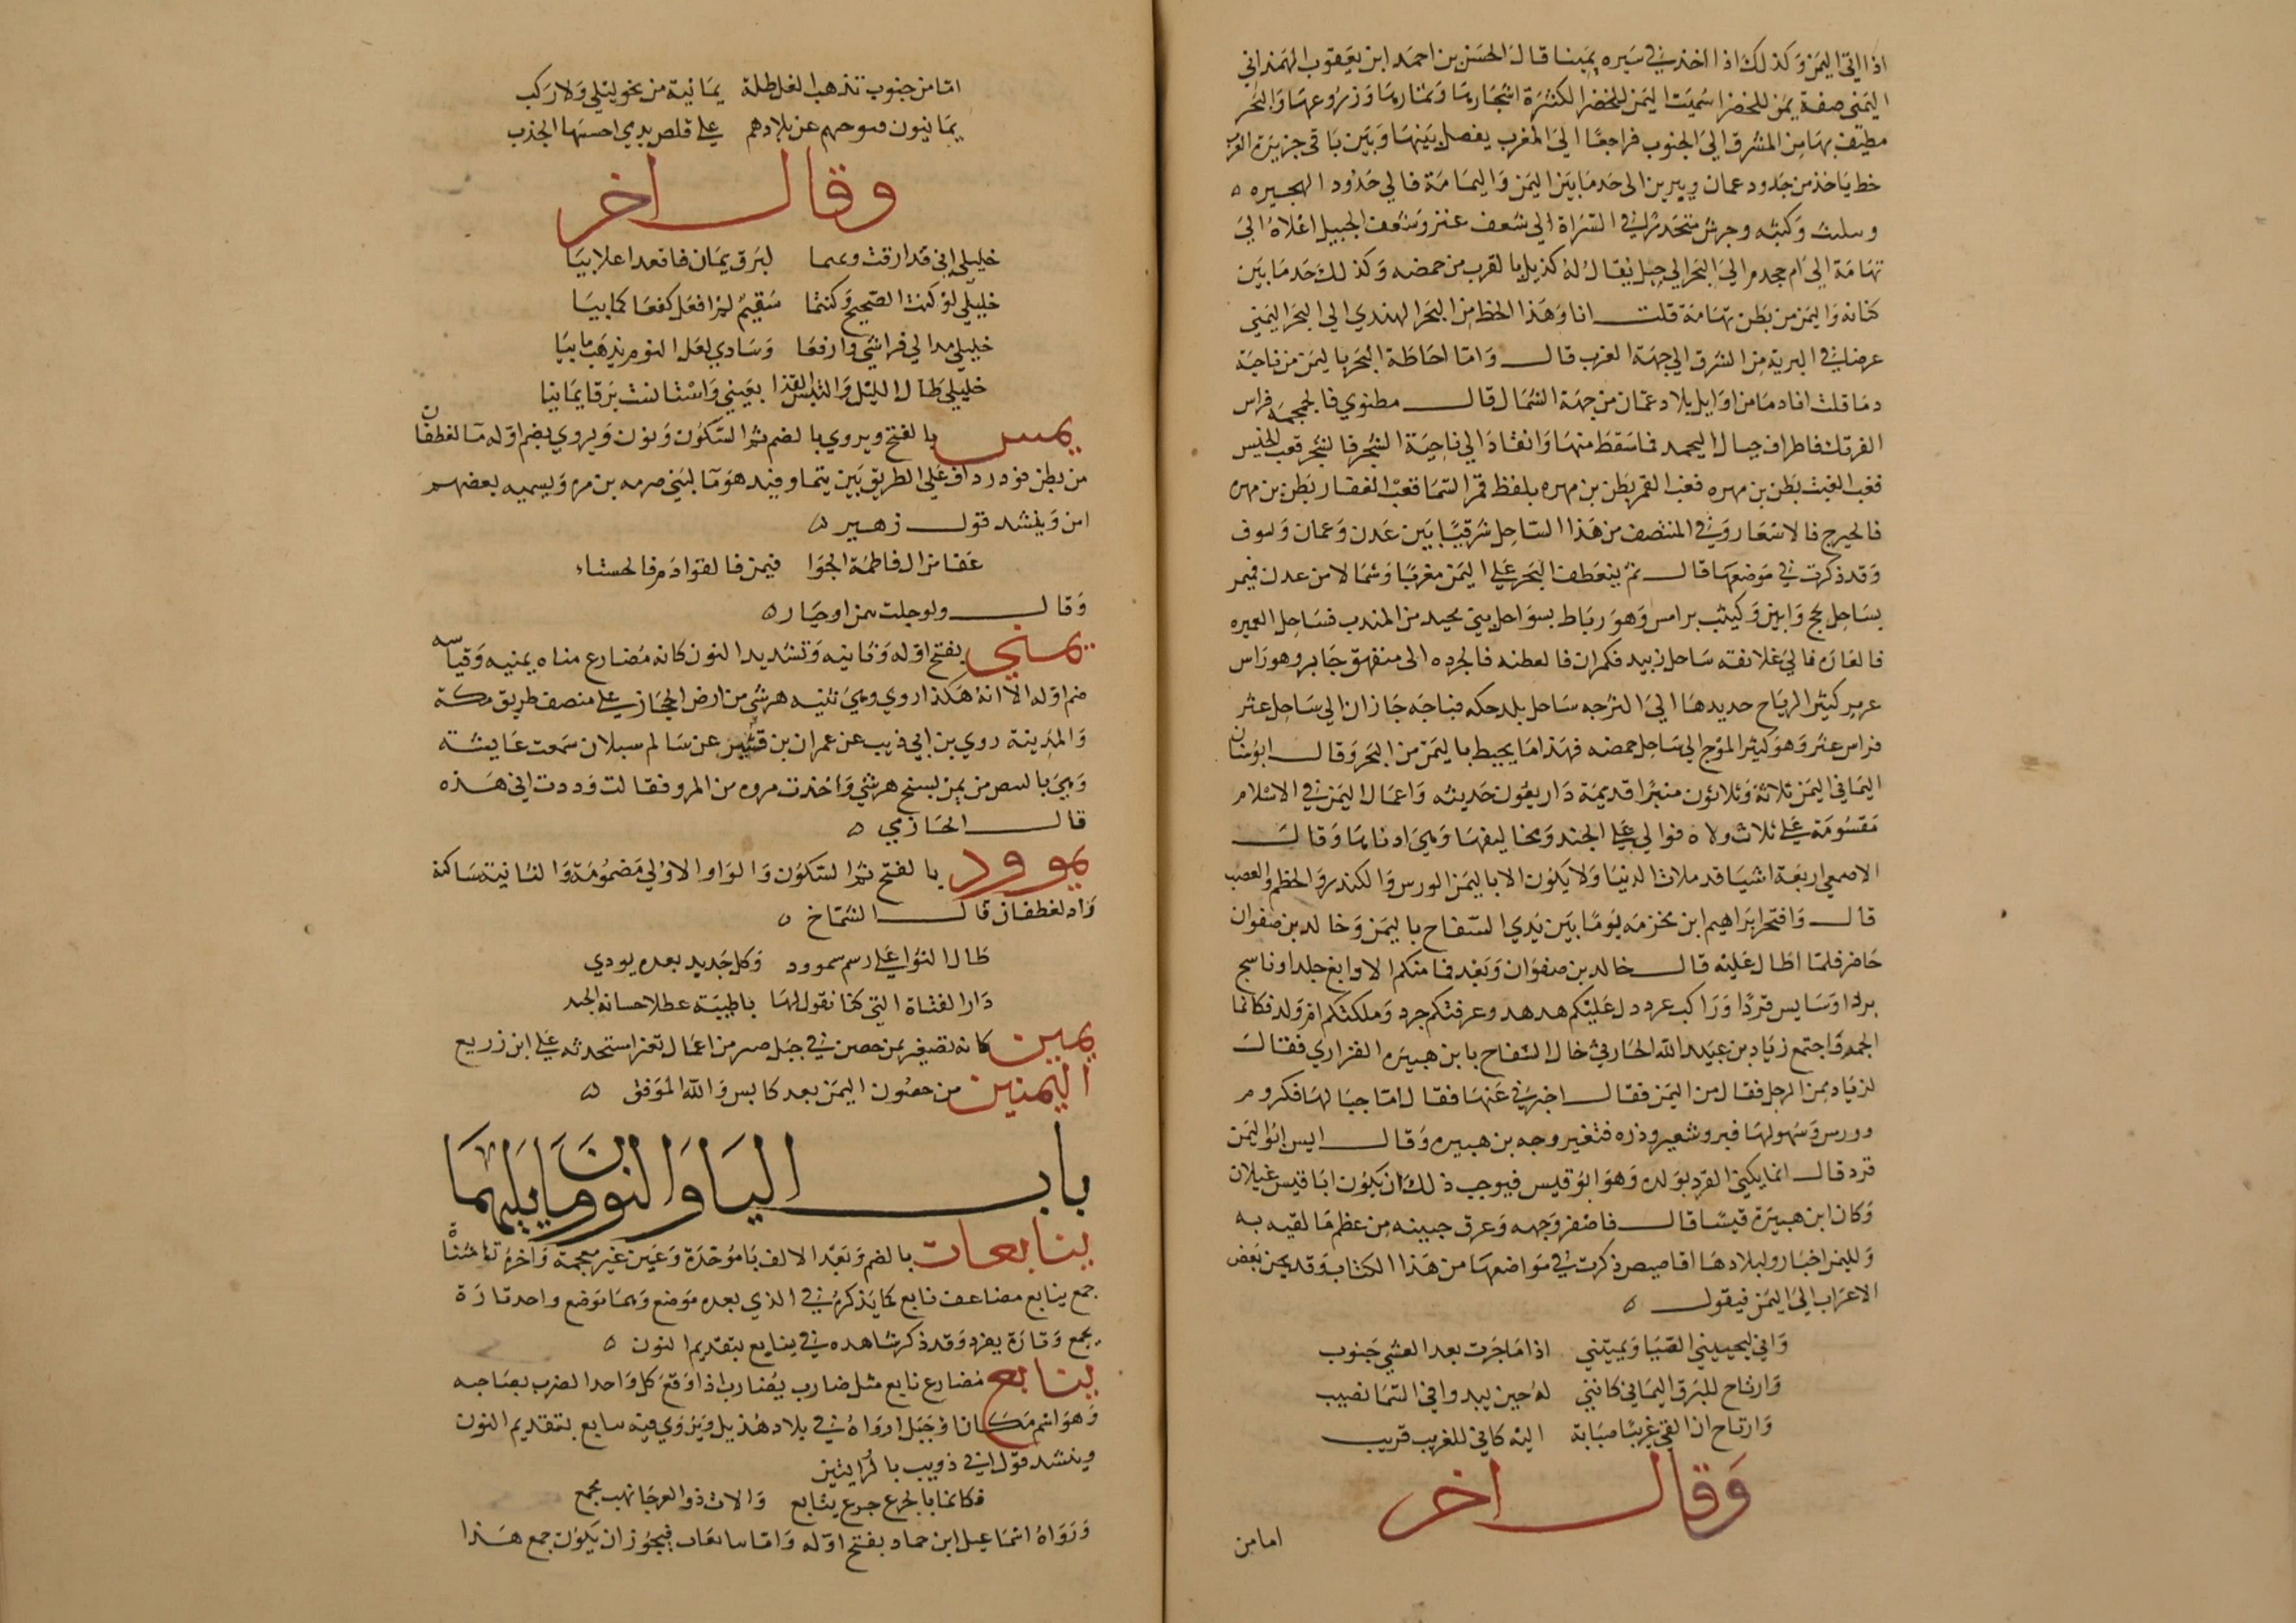 اذا اتى اليمن وكذلك اذا اخذ في سيره يمينا قال الحسن بن احمد ابن يعقوب الهمداني
اليمني صفة يمن الخضرا سميت اليمن الخضرا لكثرة اشجارها وثمارها وزروعها والبحر
مطيف بها من المشرق الى الجنوب فراجعا الى المغرب يفصل بينها وبين باقي جزيرة العرب
خط ياخذ من حدود عمان ويبرين الى حد ما بين اليمن واليمامة فالى حدود الهجيره
وكثبه وجرش منحدرا في السراة الى شعف عنز وشعف الجبيل اعلاه الى
تهامة الى ام جحدم الى البحر الى جبل يقال له كدبل بالقرب من حمضه وكذلك حد ما بين
كنانه واليمن من بطن تهامة قلت انا وهذا الخط من البحر الهندي الى البحر اليمني
عرضا في البرية من الشرق الى جهة الغرب قال واما احاطة البحر باليمن من ناحية
دما قلت انا دما من اوايل بلاد عمان من جهة الشمال قال مطنوي فالجمجمه فراس
الفرتك فاطراف جبال اليحمد فما سقط منها وانقاد الى ناحية الشجر فالشجر فغب الخيس
فغب الغيث بطن بن مهره فغب القمر بطن بن مهره بلفظ قمر السما فغب العقار بطن بن مهره
فالحيرج فالاسعار وفي المنتصف من هذا الساحل شرقيا بين عدن وعمان
وقد ذكرت في موضعها قال ثم ينعطف البحر على اليمن مغربا وشمالا من عدن فيمر
بساحل لحج وابين وكثيب برامس وهو رباط بسواحل بني مجيد من المندب فساحل العميره
فالعاره فالى غلافقه ساحل زبيد فكمران فالعطنه فالجرده الى منفهق جابر وهو راس
كثير الرياح حديدها الى الشرجه ساحل بلد حكم فباحة جازان الى ساحل عثر
فراس عثر وهو كثير الموج الى ساحل حمضه فهذا ما يحيط باليمن من البحر وقال ابو سنان
اليماني في اليمن ثلاثة وثلاثون منبرا قديمة واربعون حديثه واعمال اليمن في الاسلام
مقسومة على ثلاث ولاه فوالي على الجند ومخاليفها وهي ادناها وقال
الاصمعي اربعة اشيا قد ملات الدنيا ولا يكون الا باليمن الورس والكندر والخطر والعصب
قال وافتخر ابراهيم ابن مخزمه يوما بين يدي السفاح باليمن وخالد بن صفوان
حاضر فلما اطال عليه قال خالد بن صفوان وبعد فما منكم الا دابغ جلد او ناسج
برد او سايس قرد او راكب عرد دل عليكم هدهد وغرقتكم جرد وملكتكم ام ولد فكانما
الجمه واجتمع زياد بن عبيد الله الحارثي خال السفاح بابن هبيره الفزاري فقال
لزياد ممن الرجل فقال من اليمن فقال اخبرني عنها فقال اما جبالها فكروم
وورس وسهولها فبر وشعير وذره فتغير وجه بن هبيره وقال اليس ابو اليمن
قرد قال انما يكنى القرد بولده وهو ابو قيس فيوجب ذلك ان يكون ابا قيس غيلان
وكان ابن هبيرة قيسيا قال فاصفر وجهه وعرق جبينه من عظم ما لقيه به
ولليمن اخبار ولبلادها اقاصيص ذكرت في مواضعها من هذا الكتاب وقد يحن بعض
الاعراب الى اليمن فيقول
واني ليحييني الصبا ويميتني اذا ما جرت بعد العشي جنوب
وارتاح للبرق اليماني كانني له حين يبدو في السما نصيب
وارتاح ان القى غريبا صبابة اليه كاني للغريب قريب
وقال اخر
اما من
اما من جنوب تذهب الغل طلة يمانية من نحو ليلى ولا ركب
يمانيون عن بلادهم على قلص يدمي احستها الجذب
وقال اخر
خليلي اني قد ارقت ونمتما لبرق يمان فاقعدا عللانيا
خليلي لو كنت الصحيح وكنتما سقيمين لم افعل كفعلكما بيا
خليلي مدا لي فراشي وارفعا وسادي لعل النوم يذهب ما بيا
خليلي طال الليل والتبس القذا بعيني واستانست برقا يمانيا
يمن بالفتح ويروي بالضم ثم السكون ونون ويروي بضم اوله ما لغطفان
من بطن قو درداف على الطريق بين تيما وفيد هو ما لبني صرمه بن مره ويسميه بعضهم
امن وينشد قول زهير
عفا من ال فاطمة الجوا فيمن فالقوادم فالحساء
وقال ولو حلت بيمن او جبار
يمني بفتح اوله وثانيه وتشديد النون كانه مضارع مناه يمنيه وقياسه
ضم اوله الا انه هكذا روي وهي ثنيه هرشى من ارض الحجاز على منصف طريق مكة
والمدينة روي بن ابي ذيب عن عمران بن قشير عن سالم سبلان سمعت عايشه
وهي بالبيض من يمن بسفح هرشي واخذت مروه من المرو فقالت وددت اني هذه
قال الحازمي
يموود بالفتح ثم السكون والواو الاولى مضمومة والثانية ساكنة
واد لغطفان قال الشماخ
طال الثوا على رسم بيموود وكل جديد بعده يودي
دار الفتاة التي كنا نقول لها يا ظبية عطلا حسانه الجيد
يمين كانه تصغير يمن حصن في جبل صبر من اعمال تعز استحدثه علي ابن زريع
اليمنين من حصون اليمن بعد كابس والله الموفق
باب اليا والنون وما يليهما
ينابعات بالضم وبعد الالف با موحدة وعين غير معجمة واخره تا مثناة
جمع ينابع مضاعف نابع كما يذكر في الذي بعده موضع وهما موضع واحد تارة
يجمع وتارة يفرد وقد ذكر شاهده في ينابع بتقديم النون
ينابع مضارع نابع مثل ضارب يضارب اذا وقع كل واحد الضرب بصاحبه
وهو اسم مكان او جبل او واد في بلاد هذيل ويروي فيه نبايع بتقديم النون
وينشد قول ابي ذويب بالروايتين
فكانها بالجزع جزع ينابع والات ذو العرجا نهب مجمع
ورواه اسماعيل ابن حماد بفتح اوله واما ينابعات فيجوز ان يكون جمع هذا